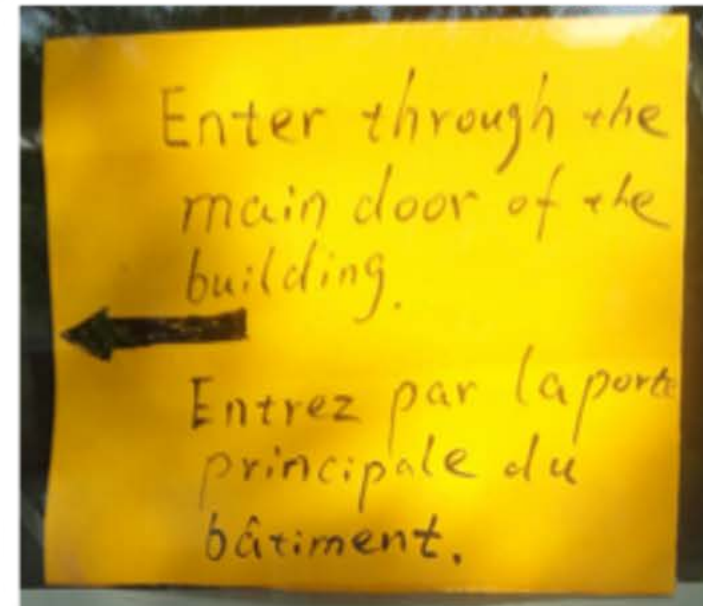 Enter through the
main door of the
building.
Entrez par la porte
principale du
bâtiment.